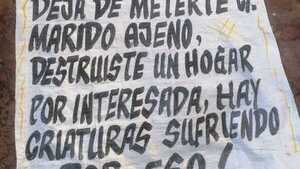 DEJA DE METERTE
MARIDO AJENO,
DESTRUISTE UN HOGAR
POR INTERESADA, HAY
CRIATURAS SUFRIENDO
POR ESO!